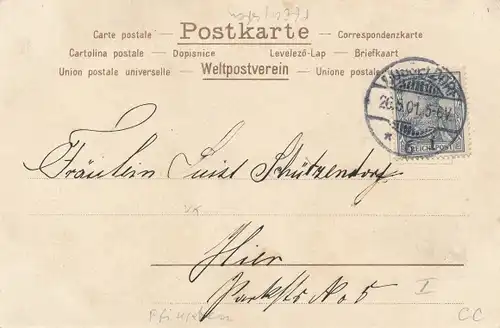 Postkarte
Carte postale Correspondenzkarte
Cartolina postale Dopisnice Levelező-Lap Briefkaart
Union postale universelle Weltpostverein Unione postale
26.5.01. 5-6V.
REICHSPOST
Fräulein Luise Schützendorf
VK
Hier
Parkstr No 5
I
Pfingsten
CC